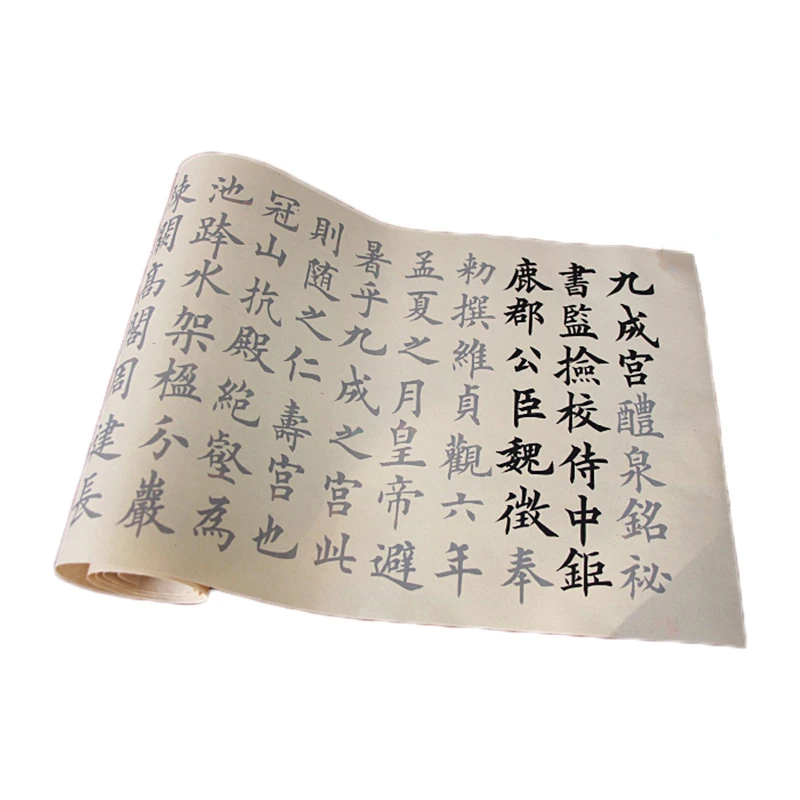 九成宫醴泉銘祕
書監撿校侍中鉅
鹿郡公臣魏徵奉
勑撰維貞觀六年
孟夏之月皇帝避
暑乎九成之宫此
則随之仁壽宫也
冠山抗殿絶壑為
池跨水架楹分巖
竦闕高閣周建長